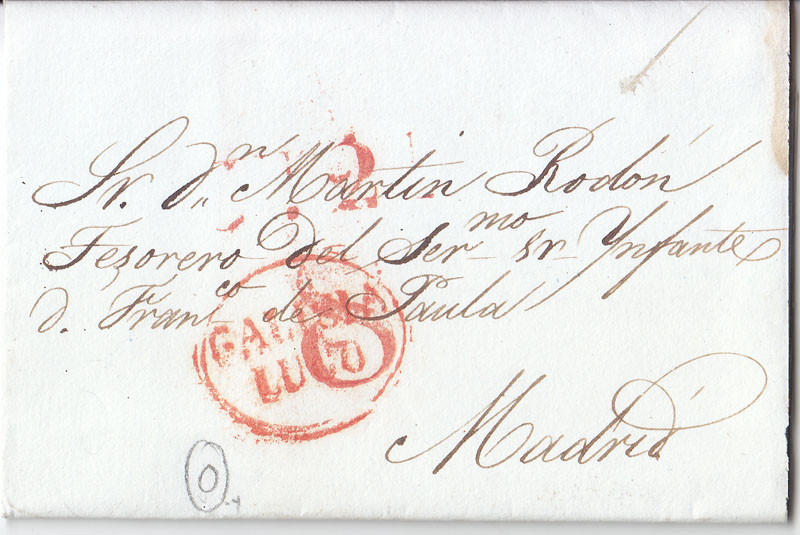 Sr. Dn. Martin Rodón
Tesorero del Sermo Sr Ynfante
d. Franco de Paula
Madrid
2
GALICIA
LUGO
6